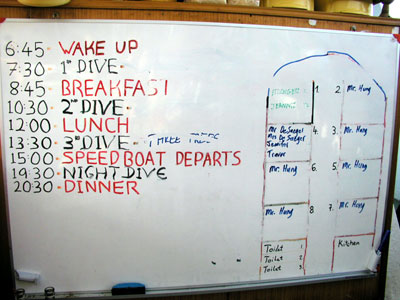 6:45 - WAKE UP
7:30 - 1st DIVE -
8:45 - BREAKFAST
10:30 - 2nd DIVE -
12:00 - LUNCH
13:30 - 3rd DIVE -
15:00 - SPEEDBOAT DEPARTS
19:30 - NIGHT DIVE
20:30 - DINNER
1.
2. Mr. Hung
4.
3. Mr. Hung
Trevor
Mr. Hung 6.
5. Mr. Hung
Mr. Hung 8
7. Mr. Hung
Toilet 1
Toilet 2
Toilet 3
Kitchen